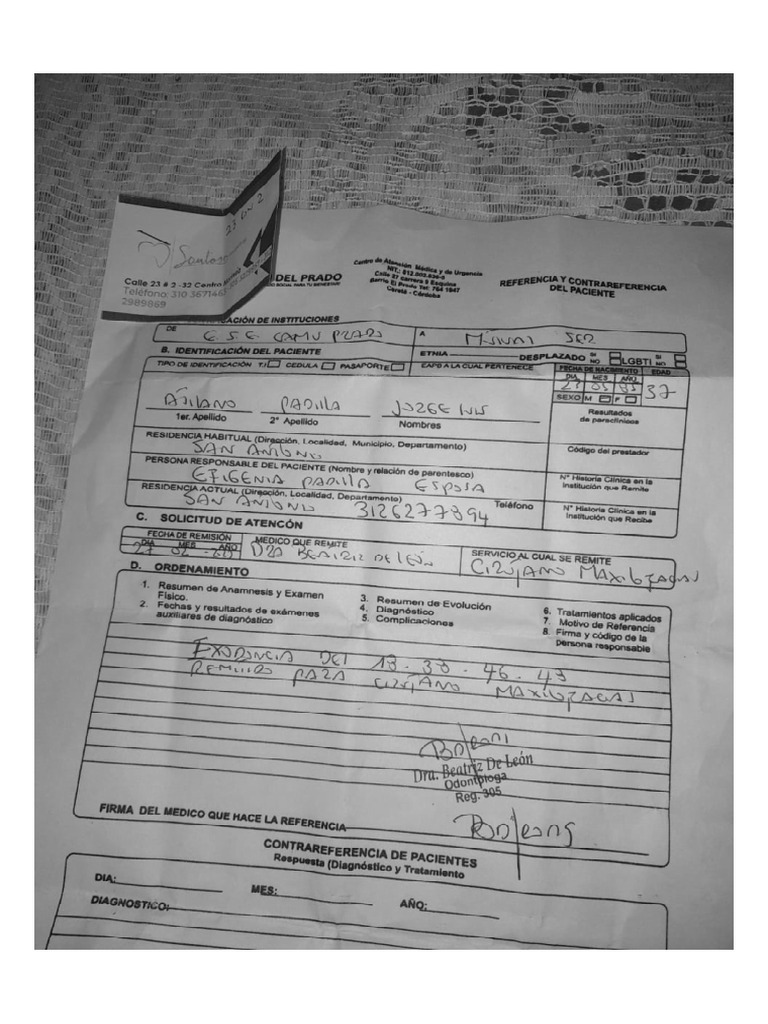 Santos
Calle 23 # 2 -32 Centro
Teléfono: 310 367146
2989869
DEL PRADO
Centro de Atención Médica y de Urgencia
Calle 27 carrera 9 Esquina
Barrio El Prado Tel: 764 1847
Cereté - Córdoba
REFERENCIA Y CONTRAREFERENCIA
DEL PACIENTE
DE INSTITUCIONES
DE E.S.E CAMU PRADO A
B. IDENTIFICACIÓN DEL PACIENTE ETNIA DESPLAZADO SI NO LGBTI SI NO
TIPO DE IDENTIFICACIÓN T.I CEDULA PASAPORTE EAPB A LA CUAL PERTENECE FECHA DE NACIMIENTO EDAD
DIA MES AÑO
23 03 85 37
SEXO M F
PADILLA JOZGE LUIS
1er. Apellido 2° Apellido Nombres
Resultados
de paraclínicos
RESIDENCIA HABITUAL (Dirección, Localidad, Municipio, Departamento)
SAN ANTONIO
Código del prestador
PERSONA RESPONSABLE DEL PACIENTE (Nombre y relación de parentesco)
EFIGENIA PADILLA ESPOSA
N° Historia Clínica en la
Institución que Remite
RESIDENCIA ACTUAL (Dirección, Localidad, Departamento) Teléfono
SAN ANTONIO 3126277894
N° Historia Clínica en la
Institución que Recibe
C. SOLICITUD DE ATENCÓN
FECHA DE REMISIÓN MEDICO QUE REMITE SERVICIO AL CUAL SE REMITE
DIA MES AÑO
27 02 DRA BEATRIZ DE LEÓN CIRUJANO MAXILOFACIAL
D. ORDENAMIENTO
1. Resumen de Anamnesis y Examen
Físico.
2. Fechas y resultados de exámenes
auxiliares de diagnóstico
3. Resumen de Evolución
4. Diagnóstico
5. Complicaciones
6. Tratamientos aplicados
7. Motivo de Referencia
8. Firma y código de la
persona responsable
EXODONCIA DEL 18 - 38 - 46 - 48
REMITIDO PARA CIRUJANO MAXILOFACIAL
Dra. Beatriz De León
Odontóloga
Reg. 305
FIRMA DEL MEDICO QUE HACE LA REFERENCIA
CONTRAREFERENCIA DE PACIENTES
Respuesta (Diagnóstico y Tratamiento
DIA: MES: AÑO:
DIAGNOSTICO: